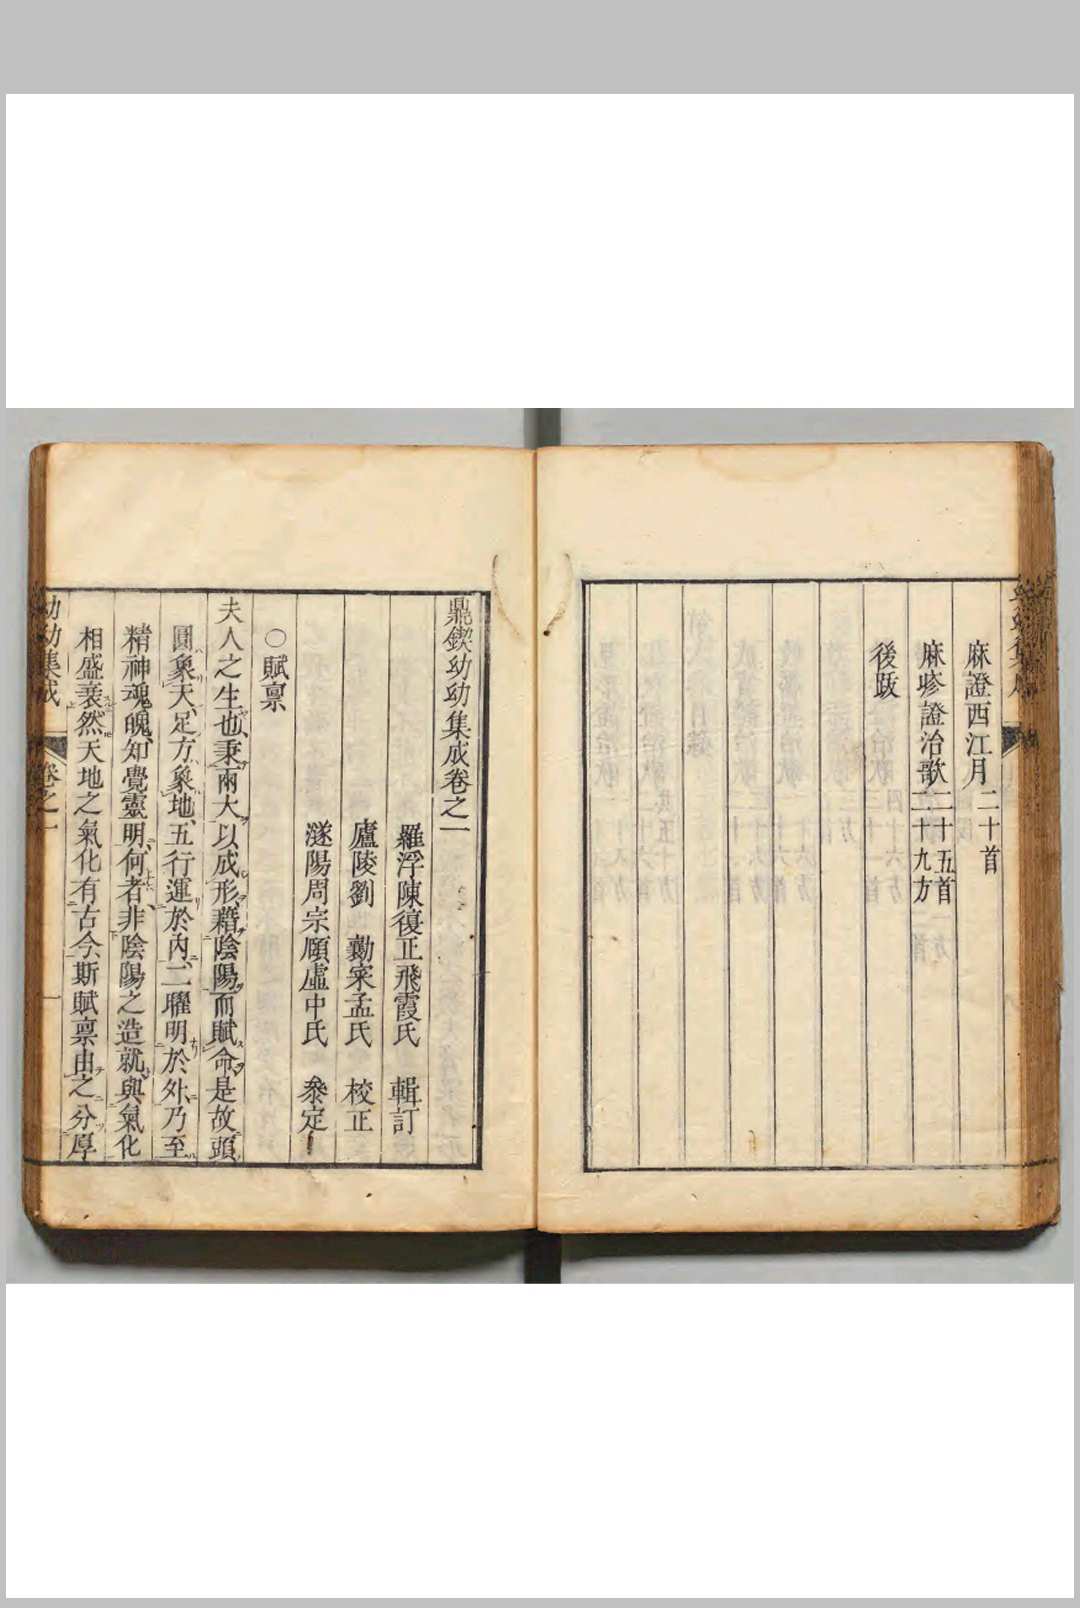 麻證西江月二十首
麻疹證治歌二十五首二十九方
後跋
鼎鍥幼幼集成卷之一
羅浮陳復正飛霞氏　輯訂
廬陵劉　勷寀孟氏　校正
㵐陽周宗頤虛中氏　叅定
○賦禀
夫人之生也秉兩大以成形藉陰陽而賦命是故頭
圓象天足方象地五行運於內二曜明於外乃至
精神魂魄知覺靈明何者非陰陽之造就與氣化
相盛衰然天地之氣化有古今斯賦禀由之分厚
幼幼集成　卷之一　一